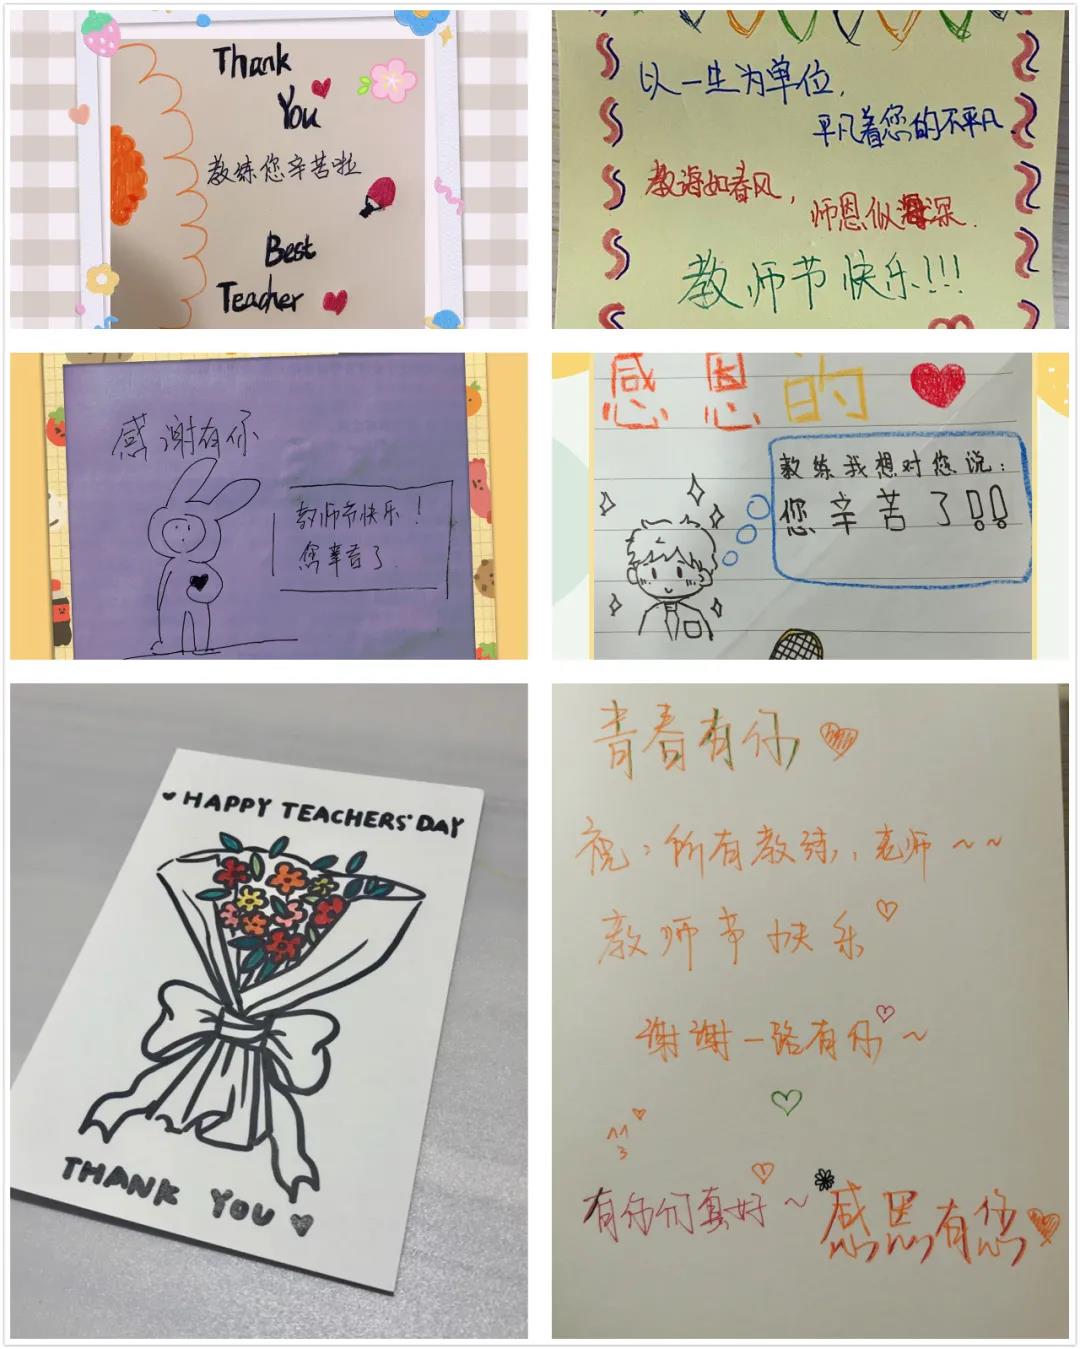 Thank
You
教练您辛苦啦
Best
Teacher
以一生为单位,
平凡着您的不平凡.
教诲如春风,
师恩似海深.
教师节快乐!!!
感谢有你
教师节快乐!
您辛苦了.
感恩的
教练我想对您说:
您辛苦了!!
HAPPY TEACHERS' DAY
THANK YOU
青春有你
祝:所有教练,老师~~
教师节快乐
谢谢一路有你~
有你们真好~
感恩有您